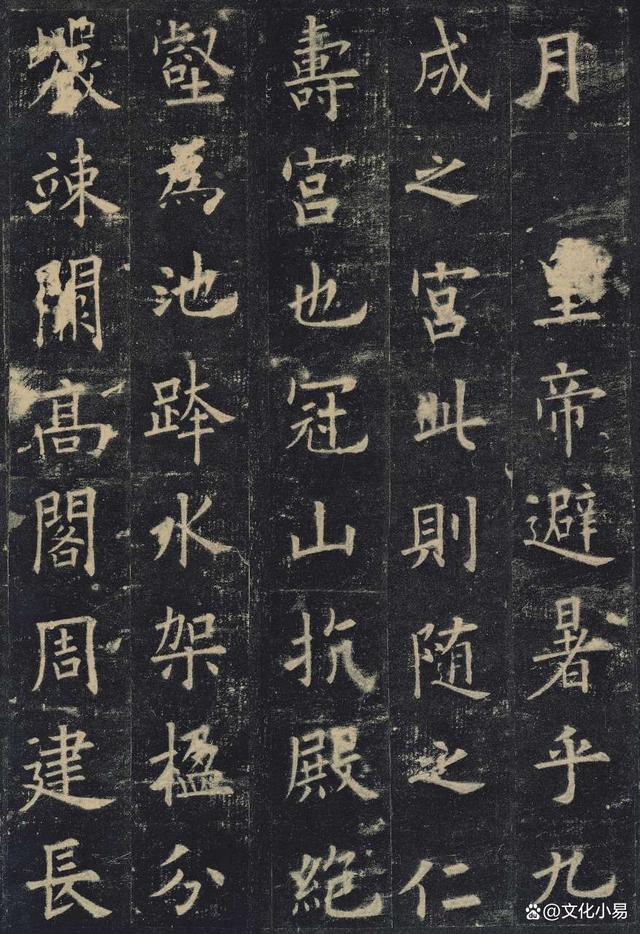 月皇帝避暑乎九
成之宮此則随之仁
壽宮也冠山抗殿絶
壑為池跨水架楹分
巖竦闕高閣周建長
@文化小易